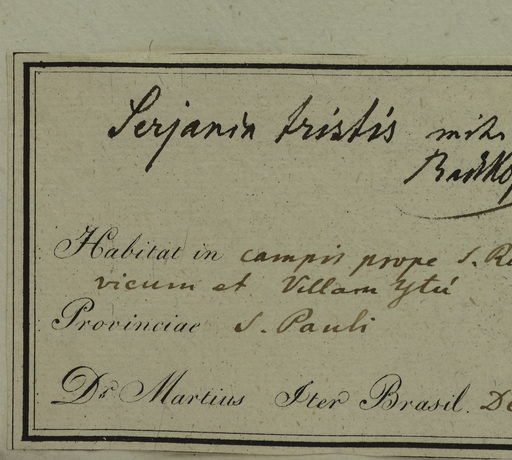 Serjania tristis mihi
Radlkof
Habitat in campis prope S. R
vicum et Villam Ytú
Provinciae S. Pauli
Dr. Martius Iter Brasil. De